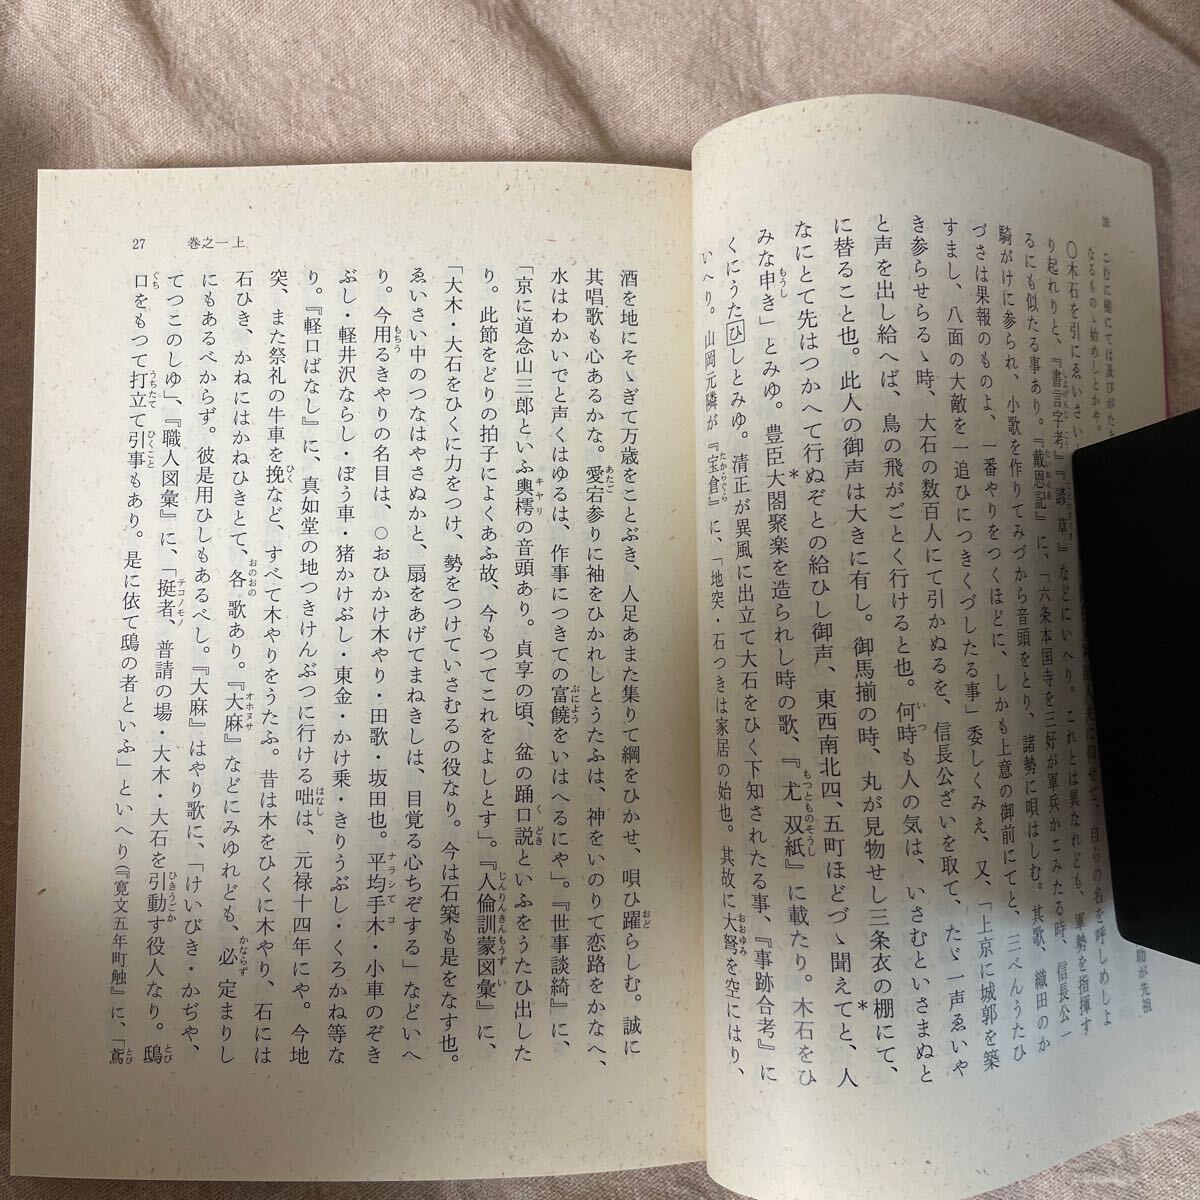 26
こむに櫃にては及びがたき
なるもの始めしとかや。
〇木石を引にゑいさい
人夫に仰せて、自らの名を呼しめしよ
助が先祖
り起れりと、『書言字考』『諺草』などにいへり。これとは異なれども、軍勢を指揮す
るにも似たる事あり。『戴恩記』に、「六条本国寺を三好が軍兵かこみたる時、信長公一
騎がけに参られ、小歌を作りてみづから音頭をとり、諸勢に唄はしむ。其歌、織田のか
づさは果報のものよ、一番やりをつくほどに、しかも上意の御前にてと、三べんうたひ
すまし、八面の大敵を一追ひにつきくづしたる事」委しくみえ、又、「上京に城郭を築
き参らせらるゝ時、大石の数百人にて引かぬるを、信長公ざいを取て、たゞ一声ゑいや
と声を出し給へば、鳥の飛がごとく行けると也。何時も人の気は、いさむといさまぬと
に替ること也。此人の御声は大きに有し。御馬揃の時、丸が見物せし三条衣の棚にて、
なにとて先はつかへて行ぬぞとの給ひし御声、東西南北四、五町ほどづゝ聞えてと、人
みな申き」とみゆ。豊臣大閤聚楽を造られし時の歌、『尤双紙』に載たり。木石をひ
くにうたひしとみゆ。清正が異風に出立て大石をひく下知されたる事、『事跡合考』に
いへり。山岡元隣が『宝倉』に、「地突・石つきは家居の始也。其故に大弩を空にはり、
酒を地にそゝぎて万歳をことぶき、人足あまた集りて綱をひかせ、唄ひ躍らしむ。誠に
其唱歌も心あるかな。愛宕参りに袖をひかれしとうたふは、神をいのりて恋路をかなへ、
水はわかいでと声くはゆるは、作事につきての富饒をいはへるにや」。『世事談綺』に、
「京に道念山三郎といふ輿樗の音頭あり。貞享の頃、盆の踊口説といふをうたひ出した
り。此節をどりの拍子によくあふ故、今もつてこれをよしとす」。『人倫訓蒙図彙』に、
「大木・大石をひくに力をつけ、勢をつけていさむるの役なり。今は石築も是をなす也。
ゑいさい中のつなはやさぬかと、扇をあげてまねきしは、目覚る心ちぞする」などいへ
り。今用るきやりの名目は、〇おひかけ木やり・田歌・坂田也。平均手木・小車のぞき
ぶし・軽井沢ならし・ぼう車・猪かけぶし・東金・かけ乗・きりうぶし・くろかね等な
り。『軽口ばなし』に、真如堂の地つきけんぶつに行ける咄は、元禄十四年にや。今地
突、また祭礼の牛車を挽など、すべて木やりをうたふ。昔は木をひくに木やり、石には
石ひき、かねにはかねひきとて、各歌あり。『大麻』などにみゆれども、必定まりし
にもあるべからず。彼是用ひしもあるべし。『大麻』はやり歌に、「けいびき・かぢや、
てつこのしゆ」、『職人図彙』に、「挺者、普請の場・大木・大石を引動す役人なり。鴟
口をもつて打立て引事もあり。是に依て鴟の者といふ」といへり（『寛文五年町触』に、「鳶
巻之一上
27